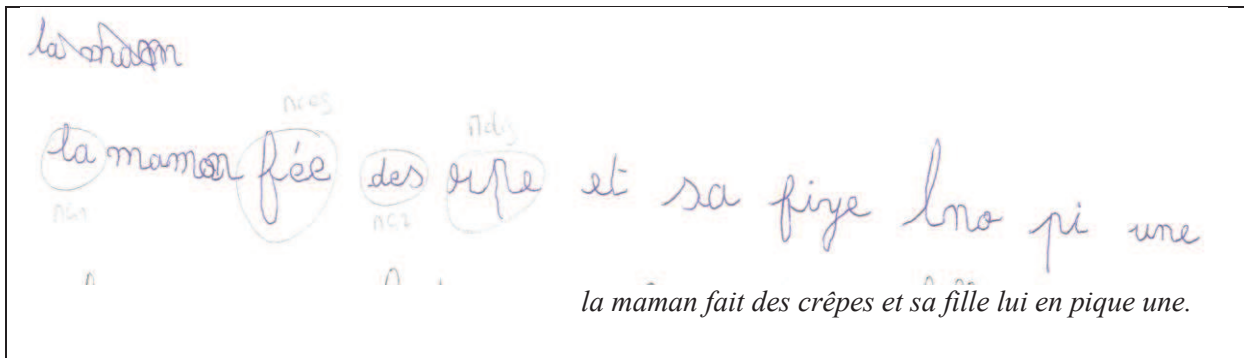 la
nces
ndis
la maman fée des rpe et sa fiye lno pi une
nc1
nc2
la maman fait des crêpes et sa fille lui en pique une.